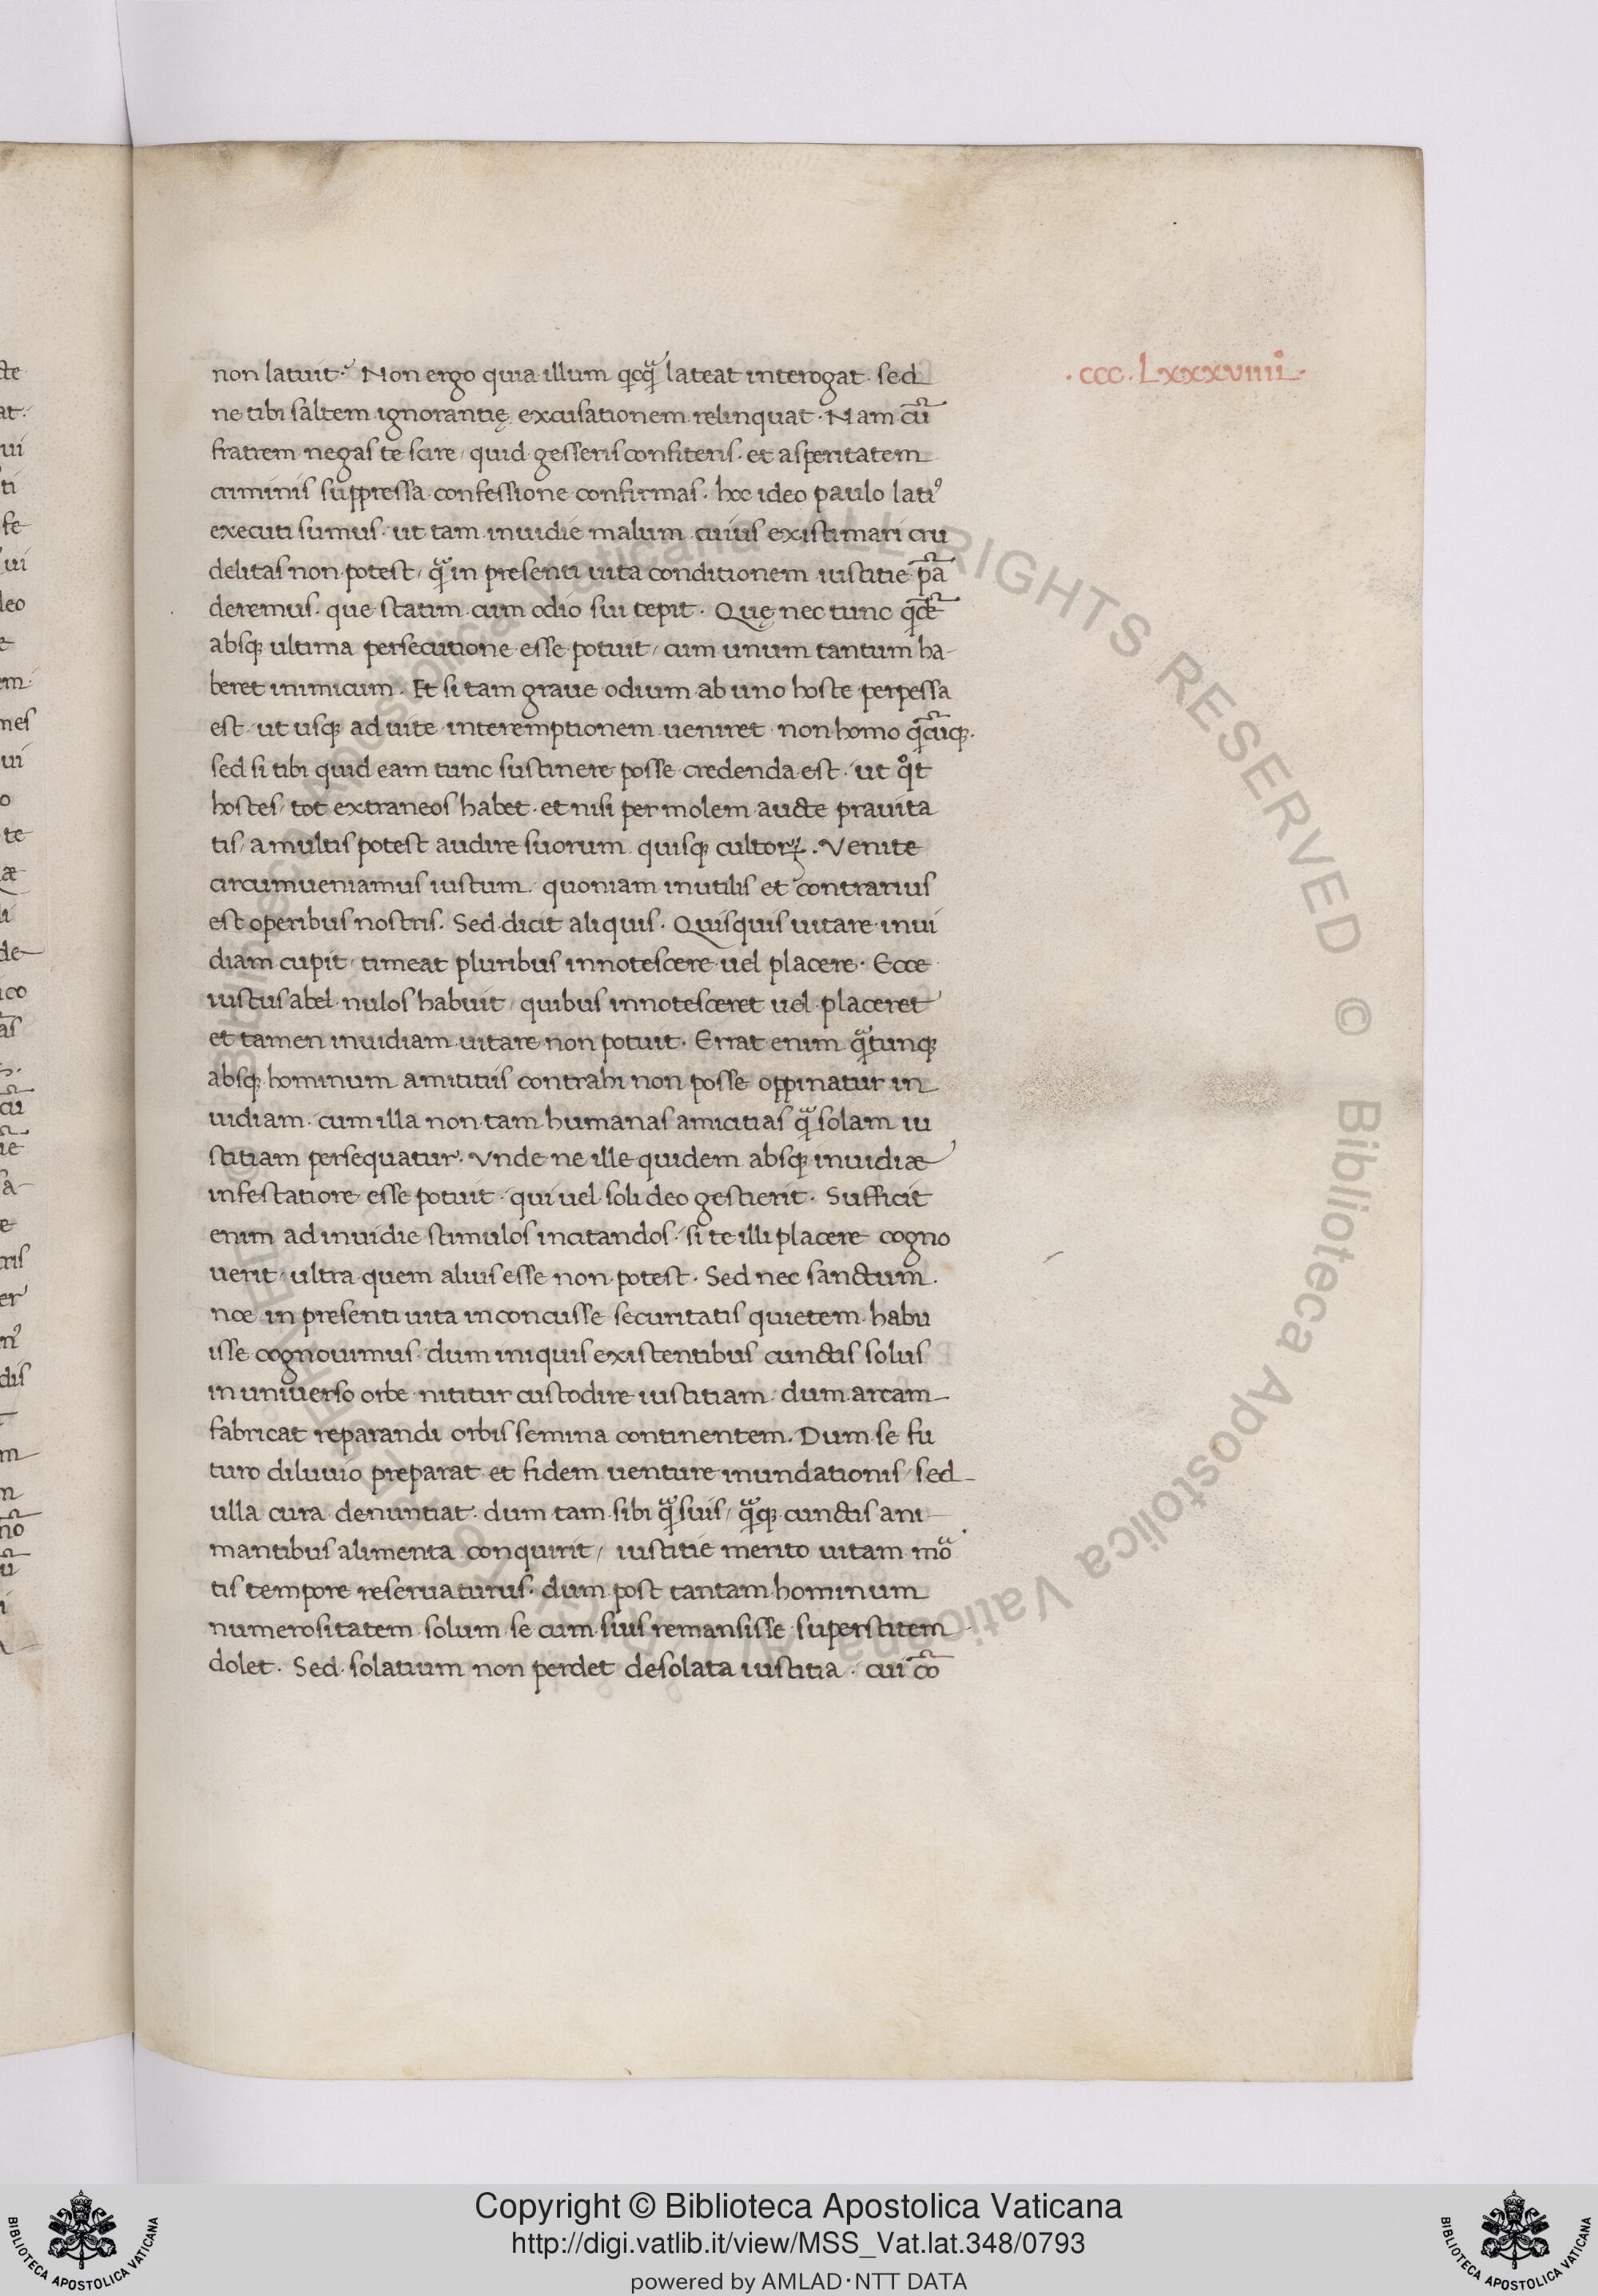 non latuit. Non ergo quia illum qicq̃ lateat interogat. sed
ne tibi saltem ignorantię excusationem relinquat. Nam cū
fratrem negas te scire, quid gesseris confiteris. et asperitatem
criminis suppressa confessione confirmas. hoc ideo paulo latiꝰ
executi sumus. ut tam inuidie malum cuius existimari cru
delitas non potest, q̃ in presenti uita conditionem iustitie
deremus. que statim cum odio sui cepit. Quę nec tunc
absq; ultima persecutione esse potuit, cum unum tantum ha-
beret inimicum. Et si tam graue odium ab uno hoste perpessa
est. ut usq; ad uite interemptionem ueniret. non homo
sed si tibi quid eam tunc sustinere posse credenda est. ut qͦt
hostes, tot extraneos habet. et nisi per molem aucte prauita
tis, a multis potest audire suorum quisq; cultoꝝ. Venite
circumueniamus iustum. quoniam inutilis et contrarius
est operibus nostris. Sed dicit aliquis. Quisquis uitare inui
diam cupit, timeat pluribus innotescere uel placere. Ecce
iustus abel nulos habuit, quibus innotesceret uel placeret
et tamen inuidiam uitare non potuit. Errat enim q̃tunq;
absq; hominum amititiis contrahi non posse oppinatur in
uidiam. cum illa non tam humanas amicitias q̃ solam iu
stitiam persequatur. Vnde ne ille quidem absq; inuidiæ
infestatiore esse potuit. qui uel soli deo gestierit. Sufficit
enim ad inuidie stimulos incitandos. si te illi placere cogno
uerit, ultra quem alius esse non potest. Sed nec sanctum
noe in presenti uita inconcusse securitatis quietem habu
isse cognouimus. dum iniquis existentibus cunctis solus
in uniuerso orbe nititur custodire iustitiam. dum arcam
fabricat reparandi orbis semina continentem. Dum se fu
turo diluuio preparat et fidem uenture inundationis, sed
ulla cura denuntiat. dum tam sibi q̃ suis, q̃q; cunctis ani
mantibus alimenta conquirit, iustitie merito uitam
tis tempore reseruaturus. dum post tantam hominum
numerositatem solum se cum suis remansisse superstitem
dolet. Sed solatium non perdet desolata iustitia. cui cō
.ccc.Lxxxviiii.
Copyright © Biblioteca Apostolica Vaticana
http://digi.vatlib.it/view/MSS_Vat.lat.348/0793
powered by AMLAD·NTT DATA